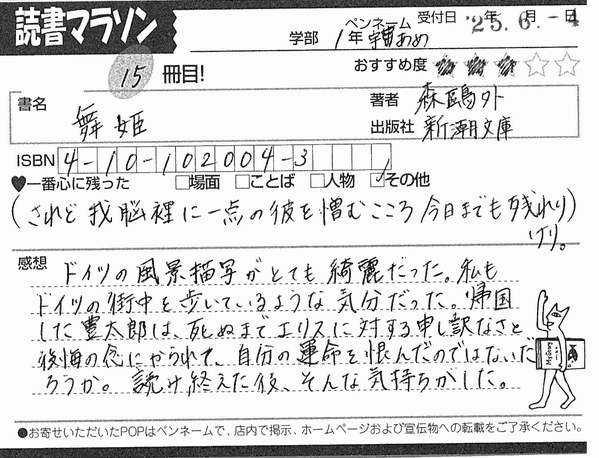 読書マラソン
学部 1年 ペンネーム 宇治あめ 受付日 '25.6.-4 年 月 日
15 冊目!
おすすめ度 ★★★☆☆
書名 舞姫
著者 森鴎外
出版社 新潮文庫
ISBN 4-10-102004-3
♥一番心に残った □場面 □ことば □人物 ☑その他
(されど我脳裡に一点の彼を憎むこころ今日までも残れり)
けり。
感想 ドイツの風景描写がとても綺麗だった。私も
ドイツの街中を歩いているような気分だった。帰国
した豊太郎は、死ぬまでエリスに対する申し訳なさと
後悔の念にかられて、自分の運命を恨んだのではないだ
ろうか。読み終えた後、そんな気持ちがした。
●お寄せいただいたPOPはペンネームで、店内で掲示、ホームページおよび宣伝物への転載をご了承ください。